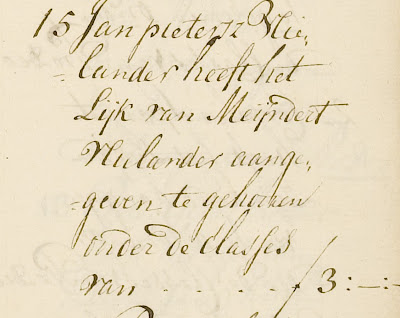 15 Jan pietersz Vlie,
-lander heeft het
Lijk van Meijndert
Vlielander aange,
-geven te gehooren
onder de Classes
van - - - - - f 3:-:-